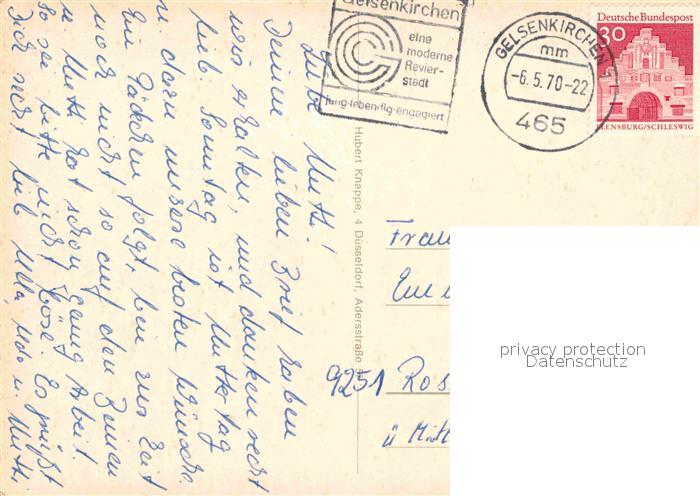 Gelsenkirchen
eine
moderne
Revier-
stadt
jung·lebendig·engagiert
GELSENKIRCHEN 1
mm
-6.5.70-22
465
Deutsche Bundespost
30
FLENSBURG/SCHLESWIG
Liebe Mutti!
Deinen lieben Brief haben
wir erhalten, und danken recht
lieb. Sonntag ist Muttertag
u. dazu unsere besten Wünsche.
Ein Päckchen folgt, bin zur Zeit
noch nicht so auf den Beinen
u. Mutti hat schon genug Arbeit
so sei bitte nicht böse. Es grüßt
Dich recht lieb Ulla, Udo u. Mutti.
Hubert Knappe, 4 Düsseldorf, Adersstraße
Frau
9251 Ros
ü Mitt
privacy protection
Datenschutz